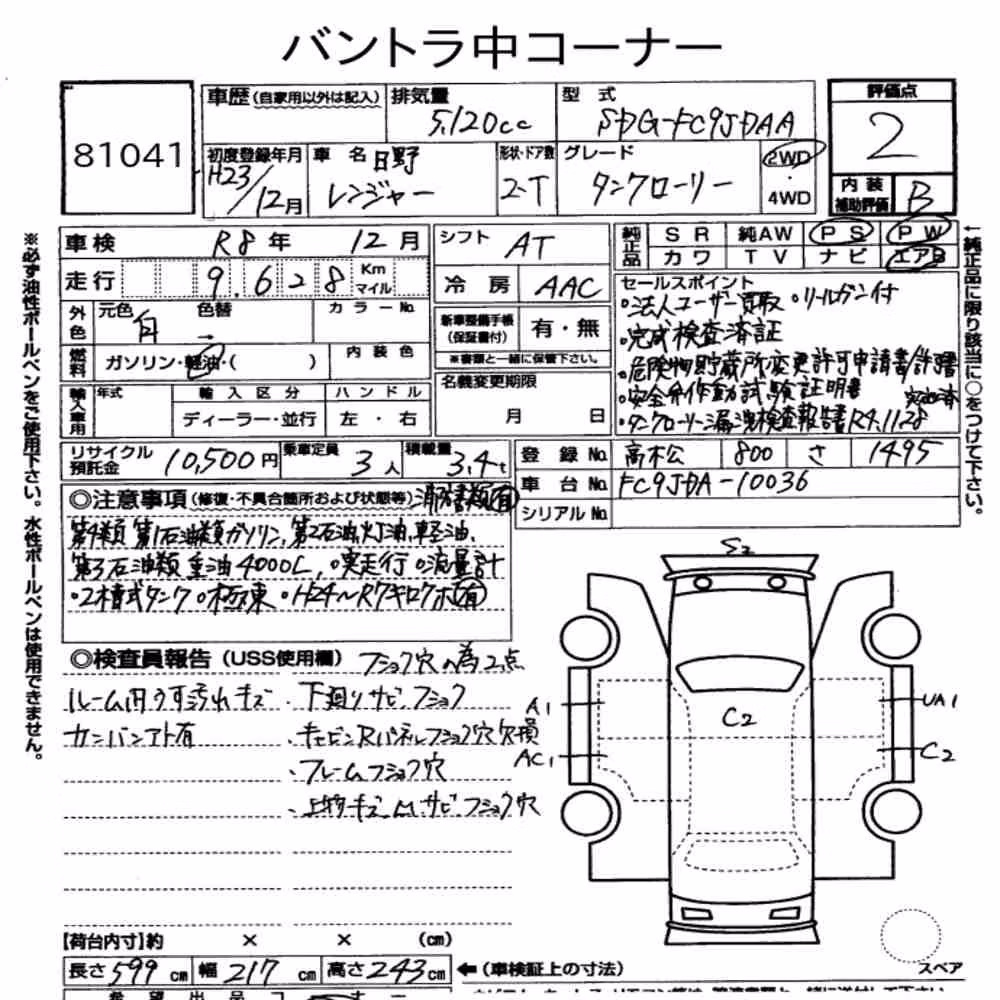 バントラ中コーナー
81041
車歴 (自家用以外は記入) 排気量 5,120cc 型式 SDG-FC9JDAA
評価点 2
初度登録年月 H23/12月 車名 日野レンジャー 形状・ドア数 2-T グレード タンクローリー 2WD・4WD
内装補助評価 B
車検 R8年 12月 シフト AT
純正品 SR 純AW PS PW
カワ TV ナビ エアB
走行 9.628 Km マイル 冷房 AAC
外色 元色 白 色替 → カラーNo.
新車整備手帳(保証書付) 有・無
※書類と一緒に保管下さい。
燃料 ガソリン・軽油・( ) 内装色
輸入車用 年式 輸入区分 ディーラー・並行 ハンドル 左・右
名義変更期限 月 日
セールスポイント
・法人ユーザー買取 ・リールガン付
・完成検査済証
・危険物貯蔵所変更許可申請書/許可書
・安全弁作動試験証明書
・タンクローリー漏洩検査報告書R4.11.28
リサイクル預託金 10,500円 乗車定員 3人 積載量 3.4t
登録No. 高松 800 さ 1495
車台No. FC9JDA-10036
シリアルNo.
◎注意事項 (修復・不具合箇所および状態等) 消防書類有
第4類 第1石油類ガソリン、第2石油、灯油、軽油、
第3石油類 重油4000L, ○実走行 ○流量計
・2槽式タンク ○極東 ・H24〜R7キロクボ有
◎検査員報告 (USS使用欄) フショク穴の為2点
ルーム内うす汚れキズ
カンバンアト有
・下廻りサビフショク
・キャビンRパネルフショク穴欠損
・フレームフショク穴
・上物キズ凹サビフショク穴
S2
A1
AC1
C2
UA1
C2
スペア
【荷台内寸】約 × × (cm)
長さ599cm 幅217cm 高さ243cm ←(車検証上の寸法)
※必ず油性ボールペンをご使用下さい。水性ボールペンは使用できません。
←純正品に限り該当に○をつけて下さい。